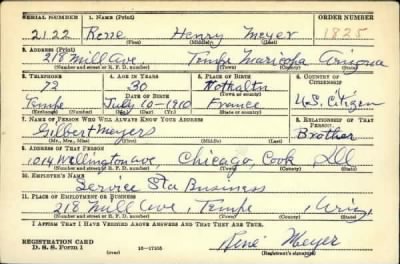 SERIAL NUMBER 1. NAME (Print) ORDER NUMBER
2122 Rene Henry Meyer 1825
(First) (Middle) (Last)
2. ADDRESS (Print)
218 Mill Ave. Tempe Maricopa Arizona
(Number and street or R. F. D. number) (Town) (County) (State)
3. TELEPHONE 4. AGE IN YEARS 5. PLACE OF BIRTH 6. COUNTRY OF CITIZENSHIP
72 30
DATE OF BIRTH (Town or county)
Tempe July 10-1910 France U.S. Citizen
(Exchange) (Number) (Mo.) (Day) (Yr.) (State or country)
7. NAME OF PERSON WHO WILL ALWAYS KNOW YOUR ADDRESS 8. RELATIONSHIP OF THAT PERSON
Gilbert Meyers Brother
(Mr., Mrs., Miss) (First) (Middle) (Last)
9. ADDRESS OF THAT PERSON
1014 Wellington Ave, Chicago, Cook Ill
(Number and street or R. F. D. number) (Town) (County) (State)
10. EMPLOYER'S NAME
Service Sta Business
11. PLACE OF EMPLOYMENT OR BUSINESS
218 Mill Ave, Tempe, Ariz,
(Number and street or R. F. D. number) (Town) (County) (State)
I AFFIRM THAT I HAVE VERIFIED ABOVE ANSWERS AND THAT THEY ARE TRUE.
REGISTRATION CARD
D. S. S. Form 1 (over) 16—17105 René Meyer